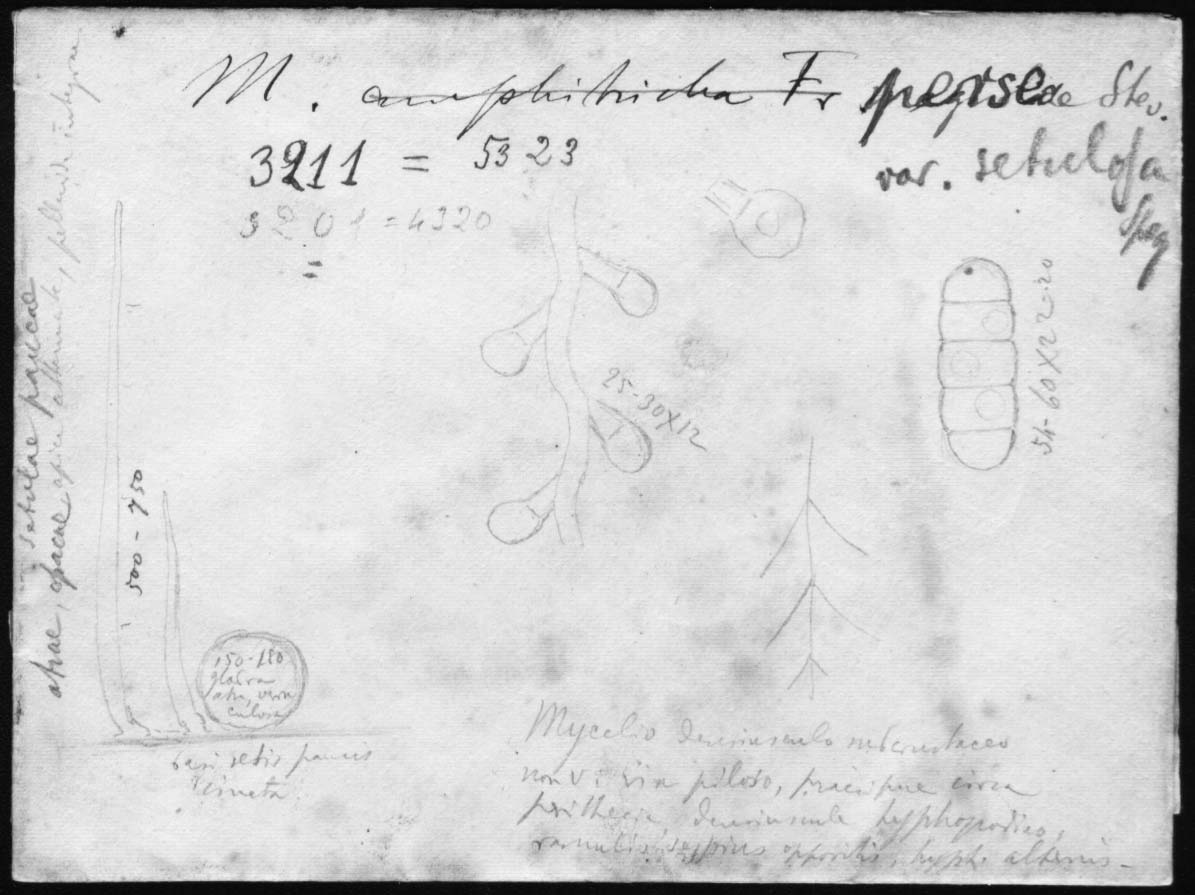 M. amphitricha Fr
Stev.
var. setulosa
Speg
3211 = 5323
3201 = 4320
=
setulae paucae
atrae, opacae apice attenuato, pellucido integrae
500 - 750
150-180
glabra
atra, verru
culosa
basi setis paucis
cincta.
25-30X12
54-60X22-20
Mycelio densiusculo subcrustaceo
non v. vix piloso, praecipue circa
perithecia, densiuscule hyphopodico,
ramulis saepius oppositis, hyph. alternis-